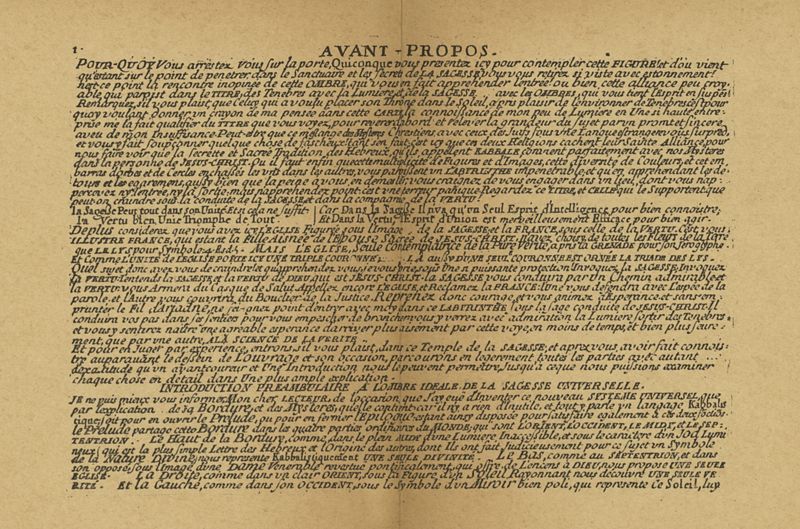 1.
AVANT-PROPOS.
POUR-QUOY Vous arrestez Vous sur la porte, Quiconque vous presentez icy pour contempler cette FIGURE! et d'ou vient
qu'estant sur le point de penetrer dans le Sanctuaire et les secrets de LA SAGESSE, vous vous retirez si viste avec estonnement!
n'est ce point la rencontre inopinée de cette OMBRE, qui vous en fait apprehender l'entrée ou bien, cette alliance peu croy-
able, qui paroist dans le TITRE, des Tenebres avec la Lumiere, et de la SAGESSE avec les OMBRES, qui vous tient l'Esprit en suspens
Remarquez, s'il vous plaist, que Celuy qui a voulu placer son Thrône dans le Soleil, a pris plaisir de l'environner de Tenebres, et pour
quoy voulant donner un crayon de ma pensée dans cette CARTE, la connoissance de mon peu de Lumiere en Une si haute entre-
prise me la fait qualifier du TITRE que vous voyez, pour reverer
d'abord et relever la grandeur du sujet par un prompt et sincere
aveu de mon Insuffisance. Peut-étre que ce mélange des Mysteres Chrestiens avec ceux des Juifs sous une Langue étrangere vous surprend,
et vous y fait soupçonner quelque chose de fascheux
nous faire voir que la secrette et Sacrée Tradition des Hebreux, qu'ils appellent KABBALE, convient parfaitement avec nos Mysteres
dans la personne de JESUS-CHRIST. Ou il faut enfin que cette multiplicité de Figures et d'Images, cette diversité de Couleurs, et cet em-
barras d'orbes et de Cercles enchassés les uns dans les autres, vous paroissent un LABYRINTHE impenetrable, et qu'en apprehendant les de-
tours et les egaremens, qu'il y a bien de la peine a vous en demesler, vous craignez de vous engager dans un lieu, dont vous n'ap-
percevez ny l'entrée, ny la sortie, mais n'apprehendez point, c'est une terreur panique. Regardez ce TITRE, et CELLE qui le supporte, et que
peut on craindre sous la conduite de la SAGESSE, et dans la compagnie de la VERTU!
la Sagesse Peut tout dans son Unité, et s'il a de ne suffit-
La Vertu bien Unie Triomphe de tout.
Car Dans la Sagesse il n'y a qu'un Seul Esprit d'Intelligence, pour bien connoistre;
Et Dans la Vertu, l'Esprit d'Union est merveilleusement Efficace pour bien agir.
De plus considerez que vous avez icy l'EGLISE Figurée sous l'Image de la SAGESSE, et la FRANCE, sous celle de la VERTU. C'est, vous
ILLUSTRE FRANCE, qui estant la Fille Aînée de l'Epouse Sacrée de JESUS-CHRIST, avez choisi de toutes les Fleurs de la Terre
que LE LYS pour Symbole. MAIS L'EGLISE, seule Contemplatrice de la Pure Verité, a pris LA GRENADE pour son Jeroglyphe
Et comme L'UNITÉ de L'EGLISE PORTE ICY UNE TRIPLE COURONNE, LA aussy D'UNE SEUL COURONNE EST ORNÉE LA TRIADE DES LYS.
Quel sujet donc avez vous de craindre! et qu'apprehendez vous, si vous n'estes pas sous Une si puissante protection? Invoquez la SAGESSE, Invoquez
la VERTU, j'entends la SAGESSE, et la VERTU de DIEU, qui est JESUS-CHRIST. La SAGESSE vous Conduira par Un Chemin admirable; et
la VERTU vous Armera du Casque de Salut. Appellez encore l'EGLISE, et Reclamez la FRANCE: l'Une vous defendra avec l'epée de la
parole; et l'autre Vous couvrira du Bouclier de la Justice. Reprenez donc courage, et vous animez d'esperance, et sans em-
prunter le Fil d'ARIADNE, ne craignez point d'entrer avec moy dans ce LABYRINTHE sous la sage conduite de JESUS-CHRIST. Il
conduira vos pas dans ses sentiers pour vous empescher de broncher, vous y verrez avec admiration la Lumiere sortir des Tenebres,
et vous y sentirez naître une agreable esperance d'arriver plus aisement par cette voye, en moins de temps, et bien plus seure-
ment, que par une autre, A LA SCIENCE DE LA VERITÉ.
Et pour en Juger par experience, entrons s'il vous plaist, dans ce Temple de la SAGESSE, et aprez vous avoir fait connois-
tre auparavant le dessein de l'Ouvrage et son occasion, parcourons en legerement toutes les parties avec autant
d'exactitude qu'un avantcoureur et Une Introduction nous le peuvent permettre, Jusqu'a ce que nous puissions examiner
chaque chose en detail dans Une plus ample explication.
INTRODUCTION PREAMBULAIRE A L'OMBRE IDEALE DE LA SAGESSE UNIVERSELLE.
JE ne puis mieux vous informer Mon cher LECTEUR, de l'occasion, que J'ay eue d'inventer ce nouveau SYSTEME UNIVERSEL, que
par l'explication de sa Bordure, et des Mysteres, qu'elle contient, car il n'y a rien d'inutile, et tout y parle un langage Kabbalis
tique, soit pour en ouvrir le Prelude, ou pour en fermer l'EPILOGUE, l'estant ainsy disposée pour satisfaire egalement a ces deux fonctions.
le Prelude partage cette Bordure dans les quatre parties ordinaires du MONDE; qui sont L'ORIENT, L'OCCIDENT, LE MIDY, ET LE SEP-
TENTRION. Le Haut de la Bordure, comme, dans le plein MIDY d'une Lumiere Inaccessible, et sous le caractere d'un Jod Lumi
neux; (qui est la plus simple Lettre des Hebreux et l'Origine des autres, dont ils ont fait, Judicieusement pour ce sujet un Symbole
de la Nature Divine,) nous represente Kabbalistiquement UNE SEULE DIVINITÉ. Le Bas, comme au SEPTENTRION, et dans
son opposé, sous l'Image d'une Dame Venerable revestue pontificalement, qui offre de L'encens A DIEU, nous propose UNE SEULE
EGLISE. La Droite, comme dans un clair ORIENT, sous la Figure d'un Soleil Rayonnant, nous decouvre UNE SEULE VE
RITÉ. Et la Gauche, comme dans son OCCIDENT, sous le Symbole d'un MIROIR bien poli, qui represente ce Soleil, luy